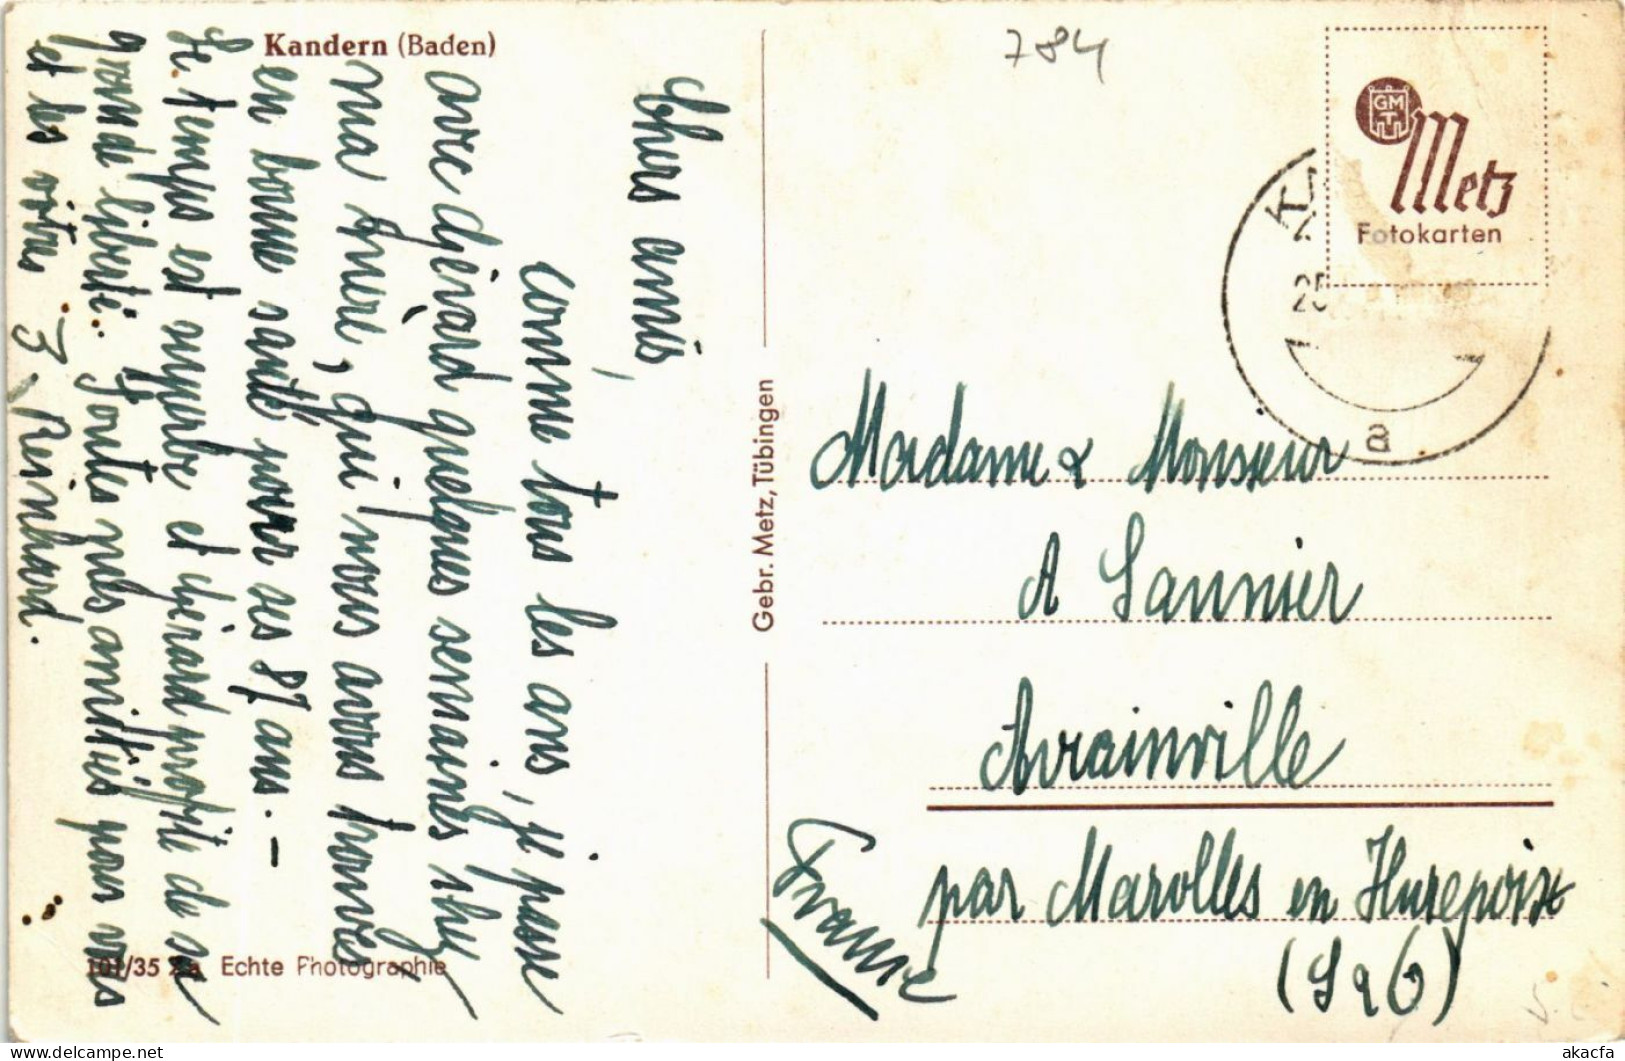 Kandern (Baden)
784
GM
T
Metz
Fotokarten
25
a
Chers amis,
comme tous les ans, je passe
avec Gérard quelques semaines chez
ma mère, qui nous avons trouvée
en bonne santé pour ses 87 ans. —
Le temps est superbe et Gérard profite de sa
grande liberté. Toutes mes amitiés pour vous
et les vôtres J. Reinhard.
Gebr. Metz, Tübingen
Madame & Monsieur
A Sannier
Avrainville
par Marolles en Hurepoix
(S & O)
France
101/35 Echte Photographie
akacfa